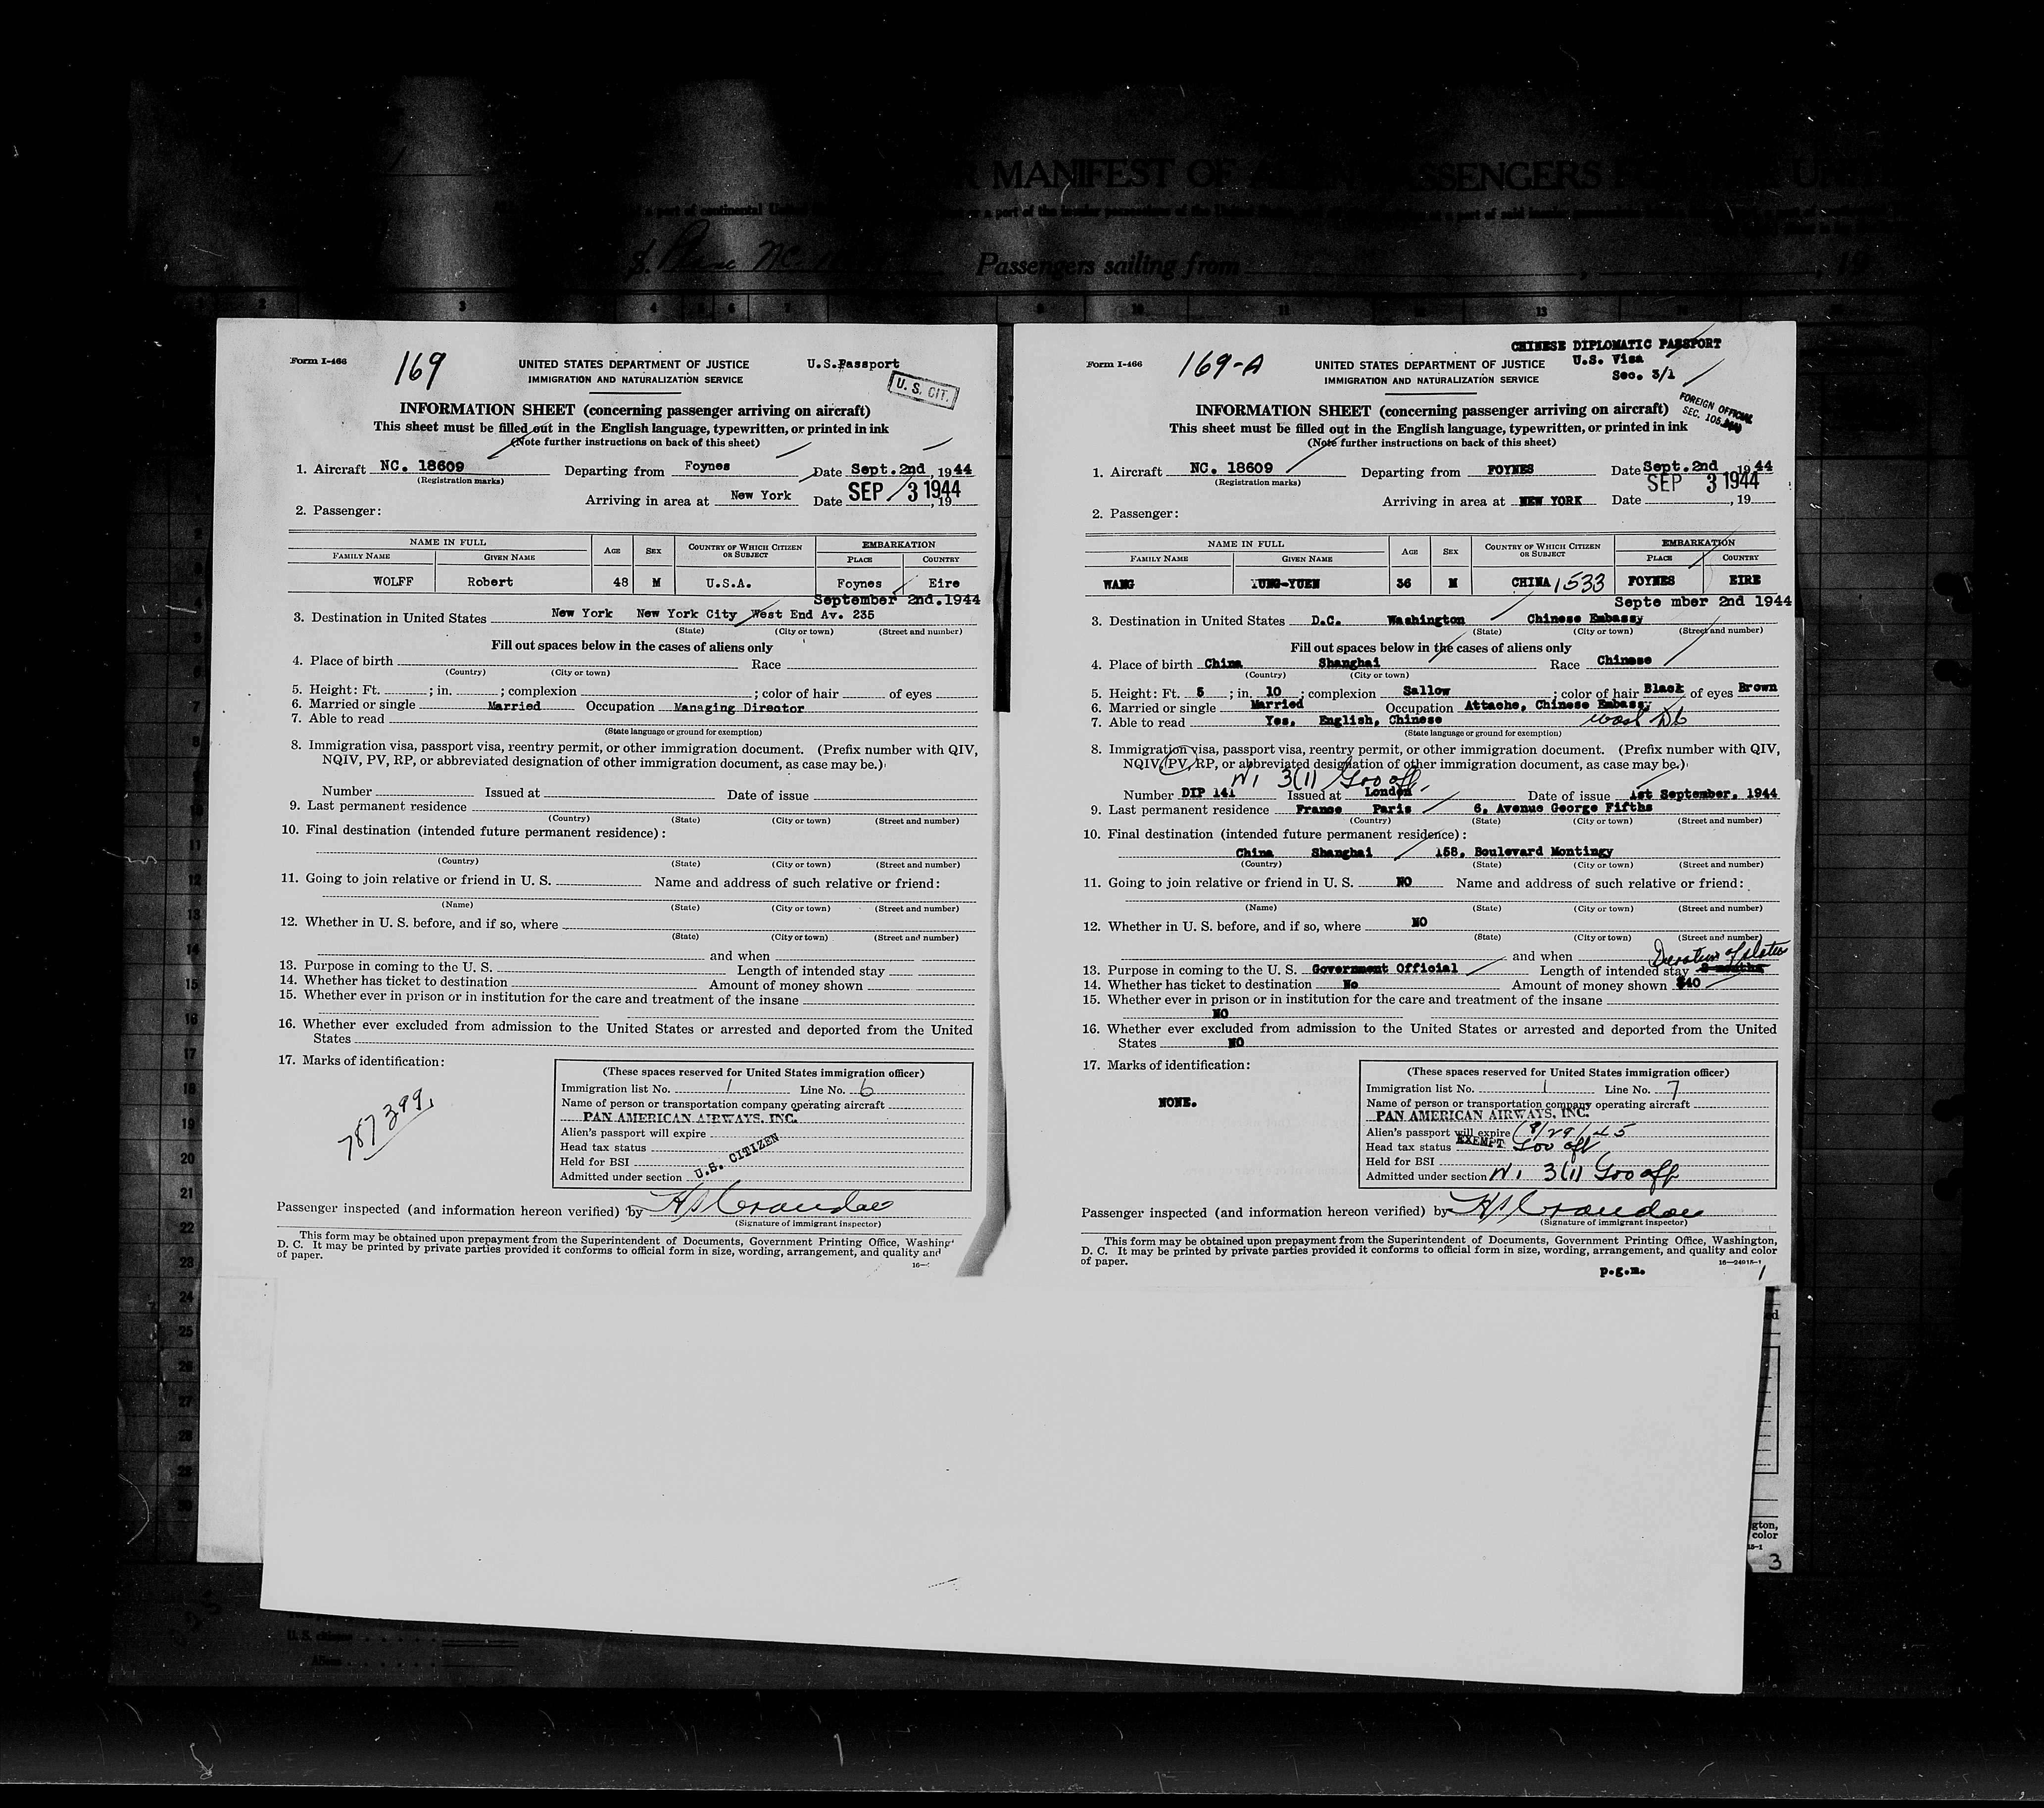 MANIFEST OF ALIEN PASSENGERS
Passengers sailing from
Form I-466
169
UNITED STATES DEPARTMENT OF JUSTICE
IMMIGRATION AND NATURALIZATION SERVICE
U.S.Passport
U. S. CIT.
INFORMATION SHEET (concerning passenger arriving on aircraft)
This sheet must be filled out in the English language, typewritten, or printed in ink
(Note further instructions on back of this sheet)
1. Aircraft NC. 18609 Departing from Foynes Date Sept. 2nd, 1944
(Registration marks)
Arriving in area at New York Date SEP 3 1944, 19
2. Passenger:
NAME IN FULL AGE SEX COUNTRY OF WHICH CITIZEN OR SUBJECT EMBARKATION
FAMILY NAME GIVEN NAME PLACE COUNTRY
WOLFF Robert 48 M U.S.A. Foynes Eire
September 2nd.1944
3. Destination in United States New York New York City West End Av. 235
(State) (City or town) (Street and number)
Fill out spaces below in the cases of aliens only
4. Place of birth Race
(Country) (City or town)
5. Height: Ft. ; in. ; complexion ; color of hair of eyes
6. Married or single Married Occupation Managing Director
7. Able to read
(State language or ground for exemption)
8. Immigration visa, passport visa, reentry permit, or other immigration document. (Prefix number with QIV,
NQIV, PV, RP, or abbreviated designation of other immigration document, as case may be.)
Number Issued at Date of issue
9. Last permanent residence
(Country) (State) (City or town) (Street and number)
10. Final destination (intended future permanent residence):
(Country) (State) (City or town) (Street and number)
11. Going to join relative or friend in U. S. Name and address of such relative or friend:
(Name) (State) (City or town) (Street and number)
12. Whether in U. S. before, and if so, where
(State) (City or town) (Street and number)
and when
13. Purpose in coming to the U. S. Length of intended stay
14. Whether has ticket to destination Amount of money shown
15. Whether ever in prison or in institution for the care and treatment of the insane
16. Whether ever excluded from admission to the United States or arrested and deported from the United
States
17. Marks of identification:
787399
(These spaces reserved for United States immigration officer)
Immigration list No. 1 Line No. 6
Name of person or transportation company operating aircraft
PAN AMERICAN AIRWAYS, INC.
Alien's passport will expire
Head tax status
Held for BSI
Admitted under section U.S. CITIZEN
Passenger inspected (and information hereon verified) by
(Signature of immigrant inspector)
This form may be obtained upon prepayment from the Superintendent of Documents, Government Printing Office,
D. C. It may be printed by private parties provided it conforms to official form in size, wording, arrangement, and quality and
of paper.
16—
CHINESE DIPLOMATIC PASSPORT
U.S. Visa
Sec. 3/1
Form I-466
169-A
UNITED STATES DEPARTMENT OF JUSTICE
IMMIGRATION AND NATURALIZATION SERVICE
FOREIGN OFFICIAL
SEC. 105
INFORMATION SHEET (concerning passenger arriving on aircraft)
This sheet must be filled out in the English language, typewritten, or printed in ink
(Note further instructions on back of this sheet)
1. Aircraft NC. 18609 Departing from FOYNES Date Sept. 2nd 1944
(Registration marks)
SEP 3 1944
Arriving in area at NEW YORK Date , 19
2. Passenger:
NAME IN FULL AGE SEX COUNTRY OF WHICH CITIZEN OR SUBJECT EMBARKATION
FAMILY NAME GIVEN NAME PLACE COUNTRY
WANG YUNG-YUEN 36 M CHINA 1533 FOYNES EIRE
Septe mber 2nd 1944
3. Destination in United States D.C. Washington Chinese Embassy
(State) (City or town) (Street and number)
Fill out spaces below in the cases of aliens only
4. Place of birth China Shanghai Race Chinese
(Country) (City or town)
5. Height: Ft. 5 ; in. 10 ; complexion Sallow ; color of hair Black of eyes Brown
6. Married or single Married Occupation Attache, Chinese Embassy
7. Able to read Yes, English, Chinese
(State language or ground for exemption)
8. Immigration visa, passport visa, reentry permit, or other immigration document. (Prefix number with QIV,
NQIV, PV, RP, or abbreviated designation of other immigration document, as case may be.)
3(1) Gov off.
Number DIP 141 Issued at London Date of issue 1st September. 1944
9. Last permanent residence France Paris 6, Avenue George Fifths
(Country) (State) (City or town) (Street and number)
10. Final destination (intended future permanent residence):
China Shanghai 158, Boulevard Montingy
(Country) (State) (City or town) (Street and number)
11. Going to join relative or friend in U. S. NO Name and address of such relative or friend:
(Name) (State) (City or town) (Street and number)
12. Whether in U. S. before, and if so, where NO
(State) (City or town) (Street and number)
and when
Duration of status
13. Purpose in coming to the U. S. Government Official Length of intended stay
14. Whether has ticket to destination No Amount of money shown $40
15. Whether ever in prison or in institution for the care and treatment of the insane
NO
16. Whether ever excluded from admission to the United States or arrested and deported from the United
States NO
17. Marks of identification:
NONE.
(These spaces reserved for United States immigration officer)
Immigration list No. 1 Line No. 7
Name of person or transportation company operating aircraft
PAN AMERICAN AIRWAYS, INC.
Alien's passport will expire 8/29/45
Head tax status EXEMPT Gov off
Held for BSI
Admitted under section 3(1) Gov off
Passenger inspected (and information hereon verified) by
(Signature of immigrant inspector)
This form may be obtained upon prepayment from the Superintendent of Documents, Government Printing Office, Washington,
D. C. It may be printed by private parties provided it conforms to official form in size, wording, arrangement, and quality and color
of paper.
16—24915-1
p.g.m.
1
gton,
color
15-1
3
U.S. citizens
Aliens